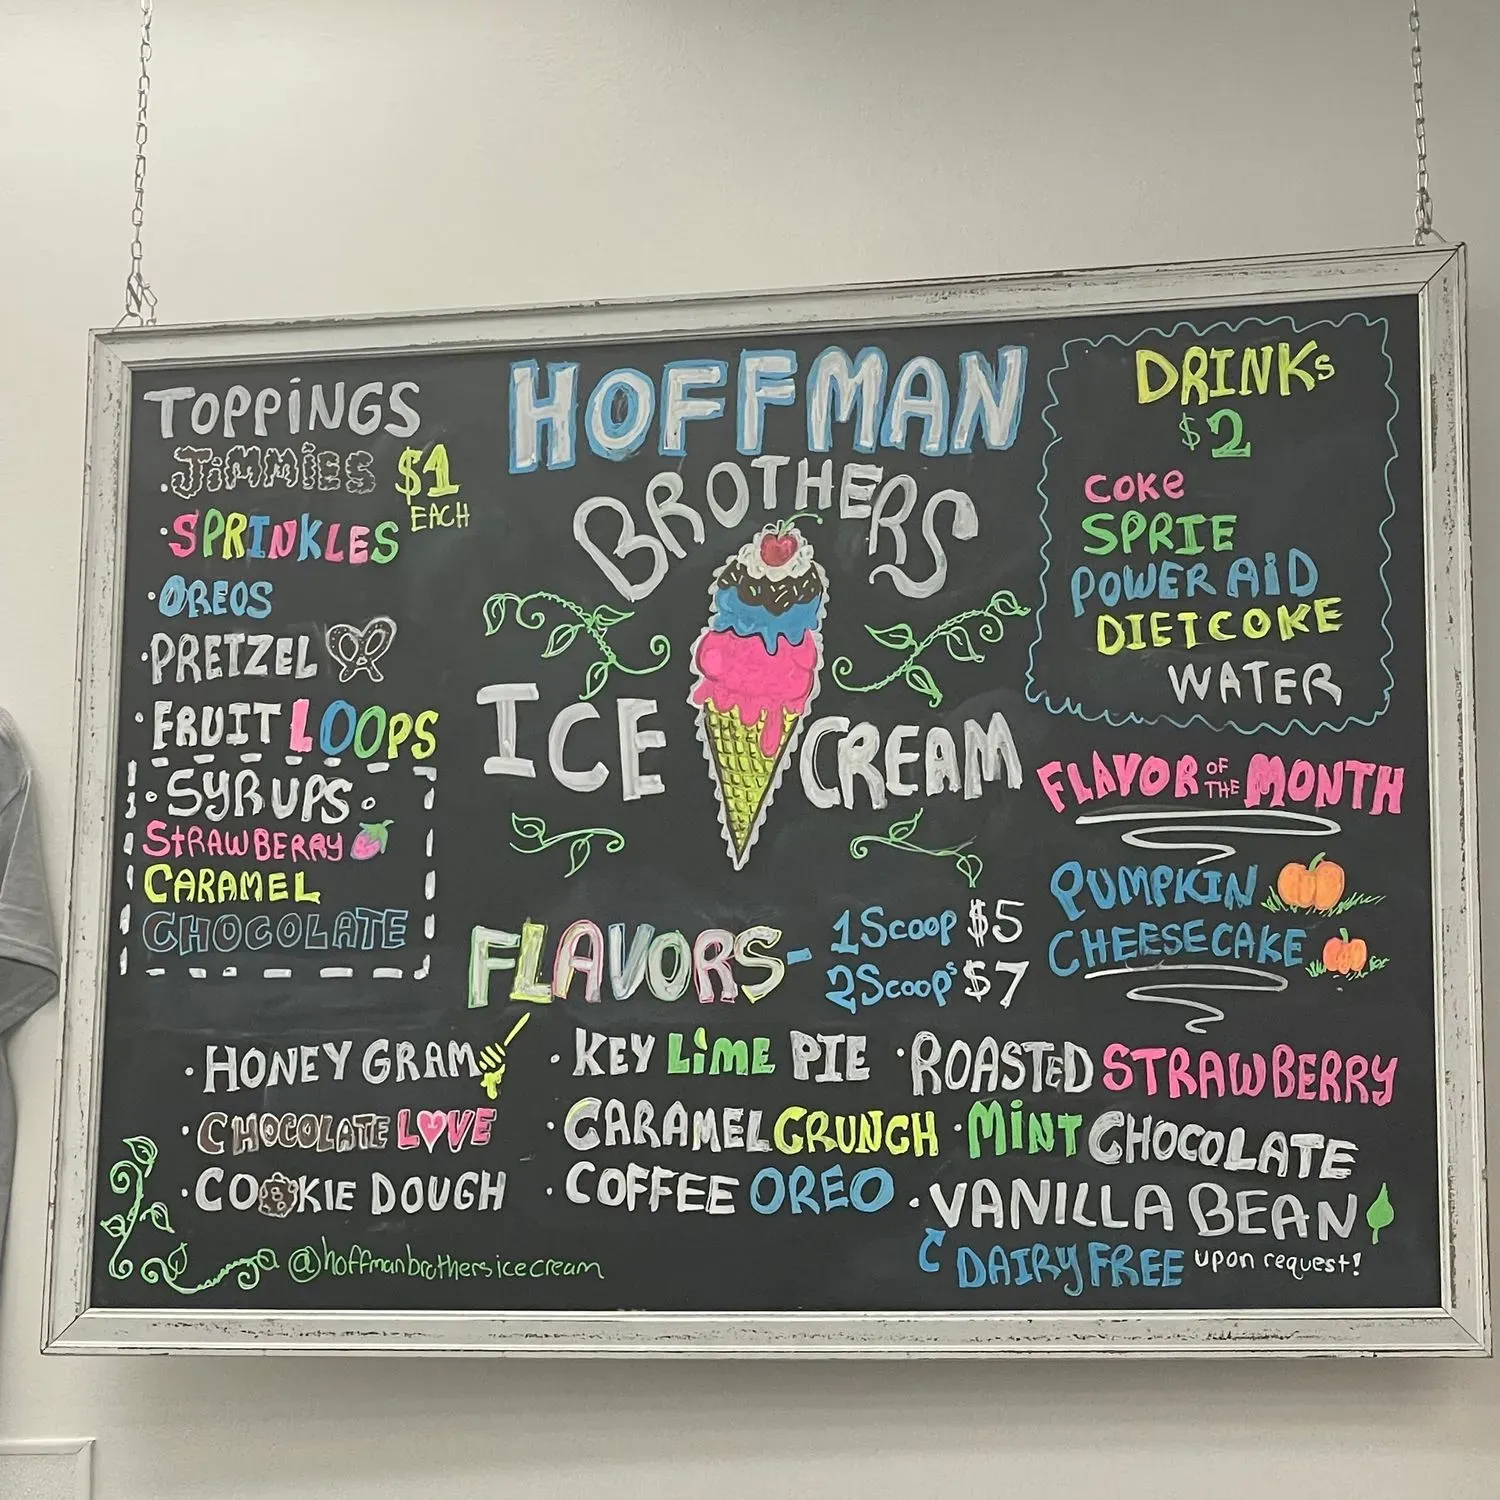 HOFFMAN
BROTHERS
ICE CREAM
TOPPiNGS
· JiMMiES $1
EACH
· SPRINKLES
· OREOS
· PRETZEL
· FRUIT LOOPS
· SYRUPS ·
STRAWBERRY
CARAMEL
CHOCOLATE
DRINKs
$2
COKe
SPRIE
POWERAiD
DIET COKE
WATER
FLAVOR OF THE MONTH
PUMPKIN
CHEESECAKE
FLAVORS-
1 Scoop $5
2 Scoops $7
· HONEY GRAM
· CHOCOLATE LOVE
· COOKIE DOUGH
· KEY LiME PIE
· CARAMEL CRUNCH
· COFFEE OREO
· ROASTED STRAWBERRY
· MiNT CHOCOLATE
· VANILLA BEAN
DAIRY FREE upon request!
@hoffmanbrothersicecream